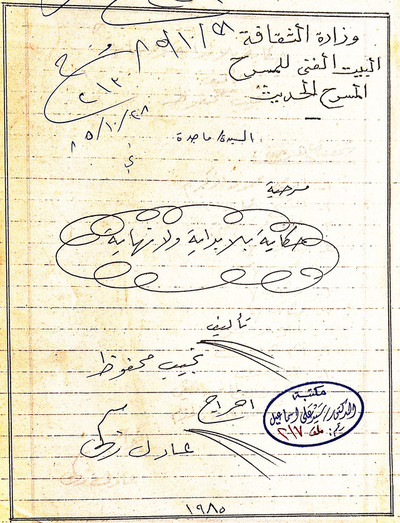 وزارة الثقافة
البيت الفنى للمسرح
المسرح الحديث
٢١٣
٨٥/١٠/٢٨
السيدة/ ماجدة
مسرحية
حكاية بلا بداية ولا نهاية
تأليف
نجيب محفوظ
اخراج
عادل زكى
مكتبة
الدكتور/ سيد على اسماعيل
رقم: ملف ٢١٧
١٩٨٥